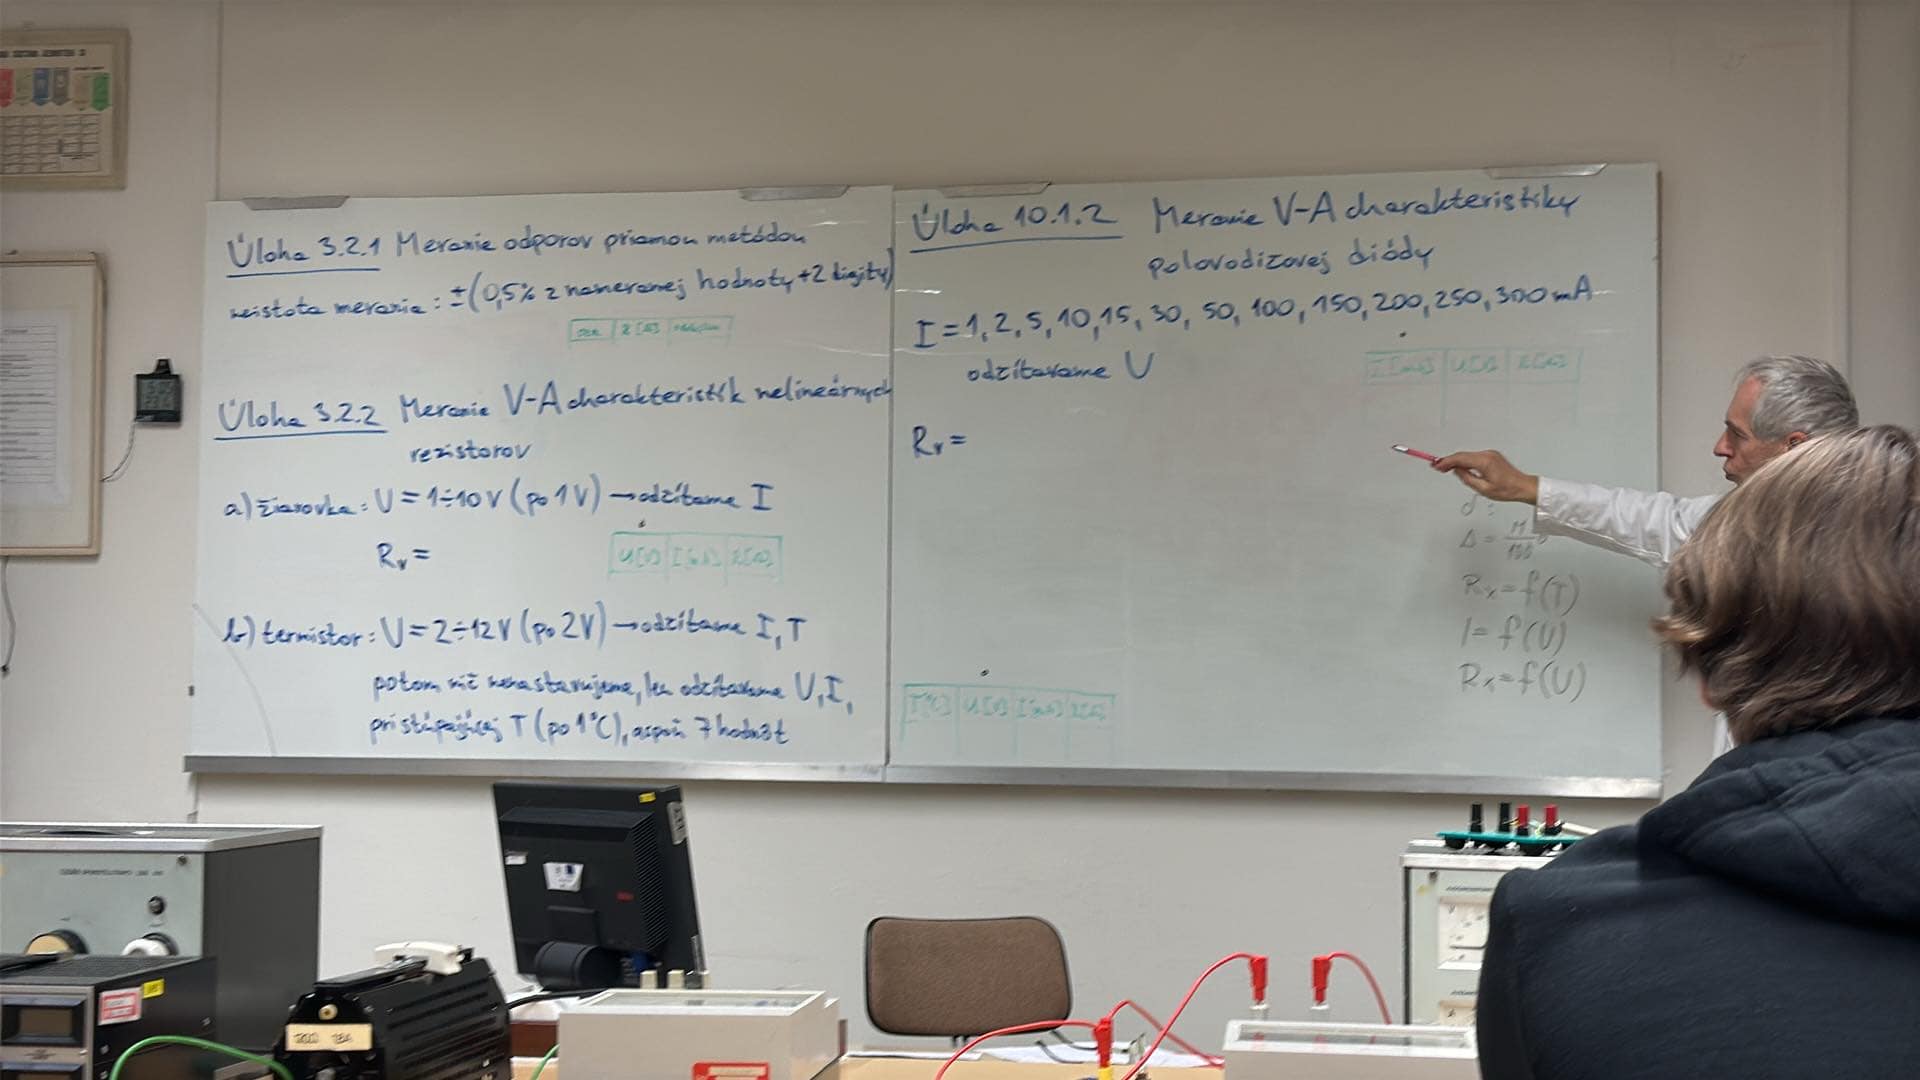 Úloha 3.2.1 Meranie odporov priamou metódou
neistota merania: ±(0,5% z nameranej hodnoty +2 digity)
R [Ω]
Úloha 3.2.2 Meranie V-A charakteristík nelineárnych
rezistorov
a) žiarovka: U = 1÷10 V (po 1 V) → odčítame I
Rv =
U[V] I[mA] R[Ω]
b) termistor: U = 2÷12 V (po 2V) → odčítame I, T
potom nič nenastavujeme, len odčítavame U, I,
pri stúpajúcej T (po 1°C), aspoň 7 hodnôt
Úloha 10.1.2 Meranie V-A charakteristiky
polovodičovej diódy
I = 1, 2, 5, 10, 15, 30, 50, 100, 150, 200, 250, 300 mA
odčítavame U
I[mA] U[V] R[Ω]
Rv =
Δ = M/100
Rx = f(T)
I = f(U)
Rx = f(U)
T[°C] U[V] I[mA] R[Ω]